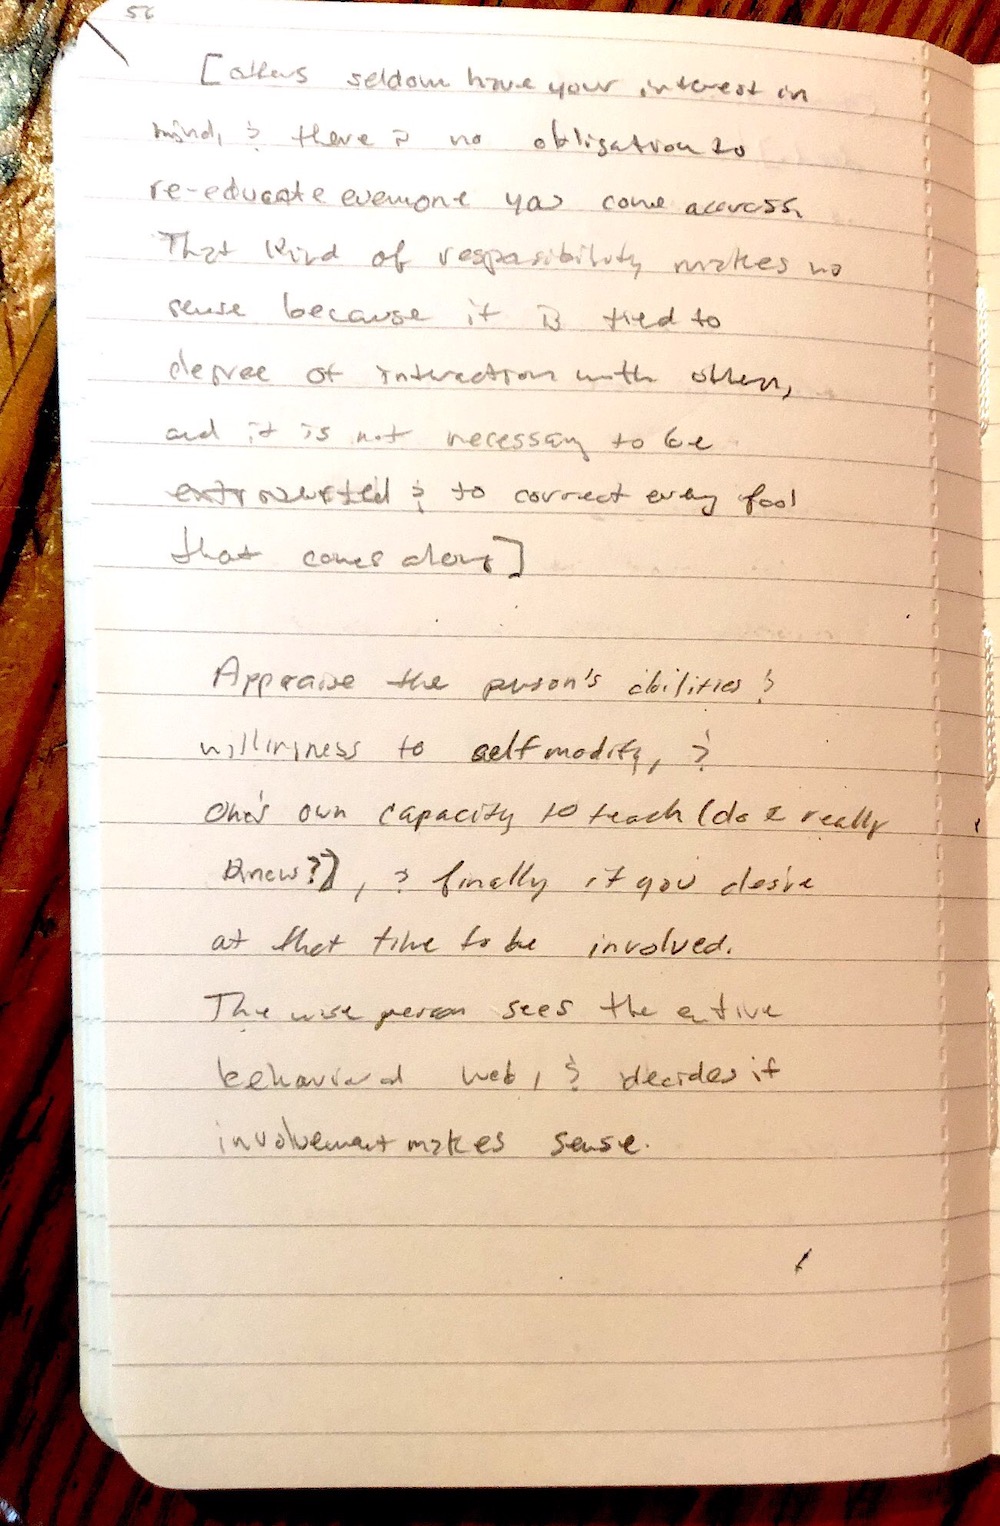 56
[others seldom have your interest in
mind, & there is no obligation to
re-educate everyone you come across.
That kind of responsibility makes no
sense because it is tied to
degree of interaction with others,
and it is not necessary to be
extroverted & to correct every fool
that comes along]
Appraise the person's abilities &
willingness to self modify, &
One's own capacity to teach (do I really
know?), & finally if you desire
at that time to be involved.
The wise person sees the entire
behavioral web, & decides if
involvement makes sense.